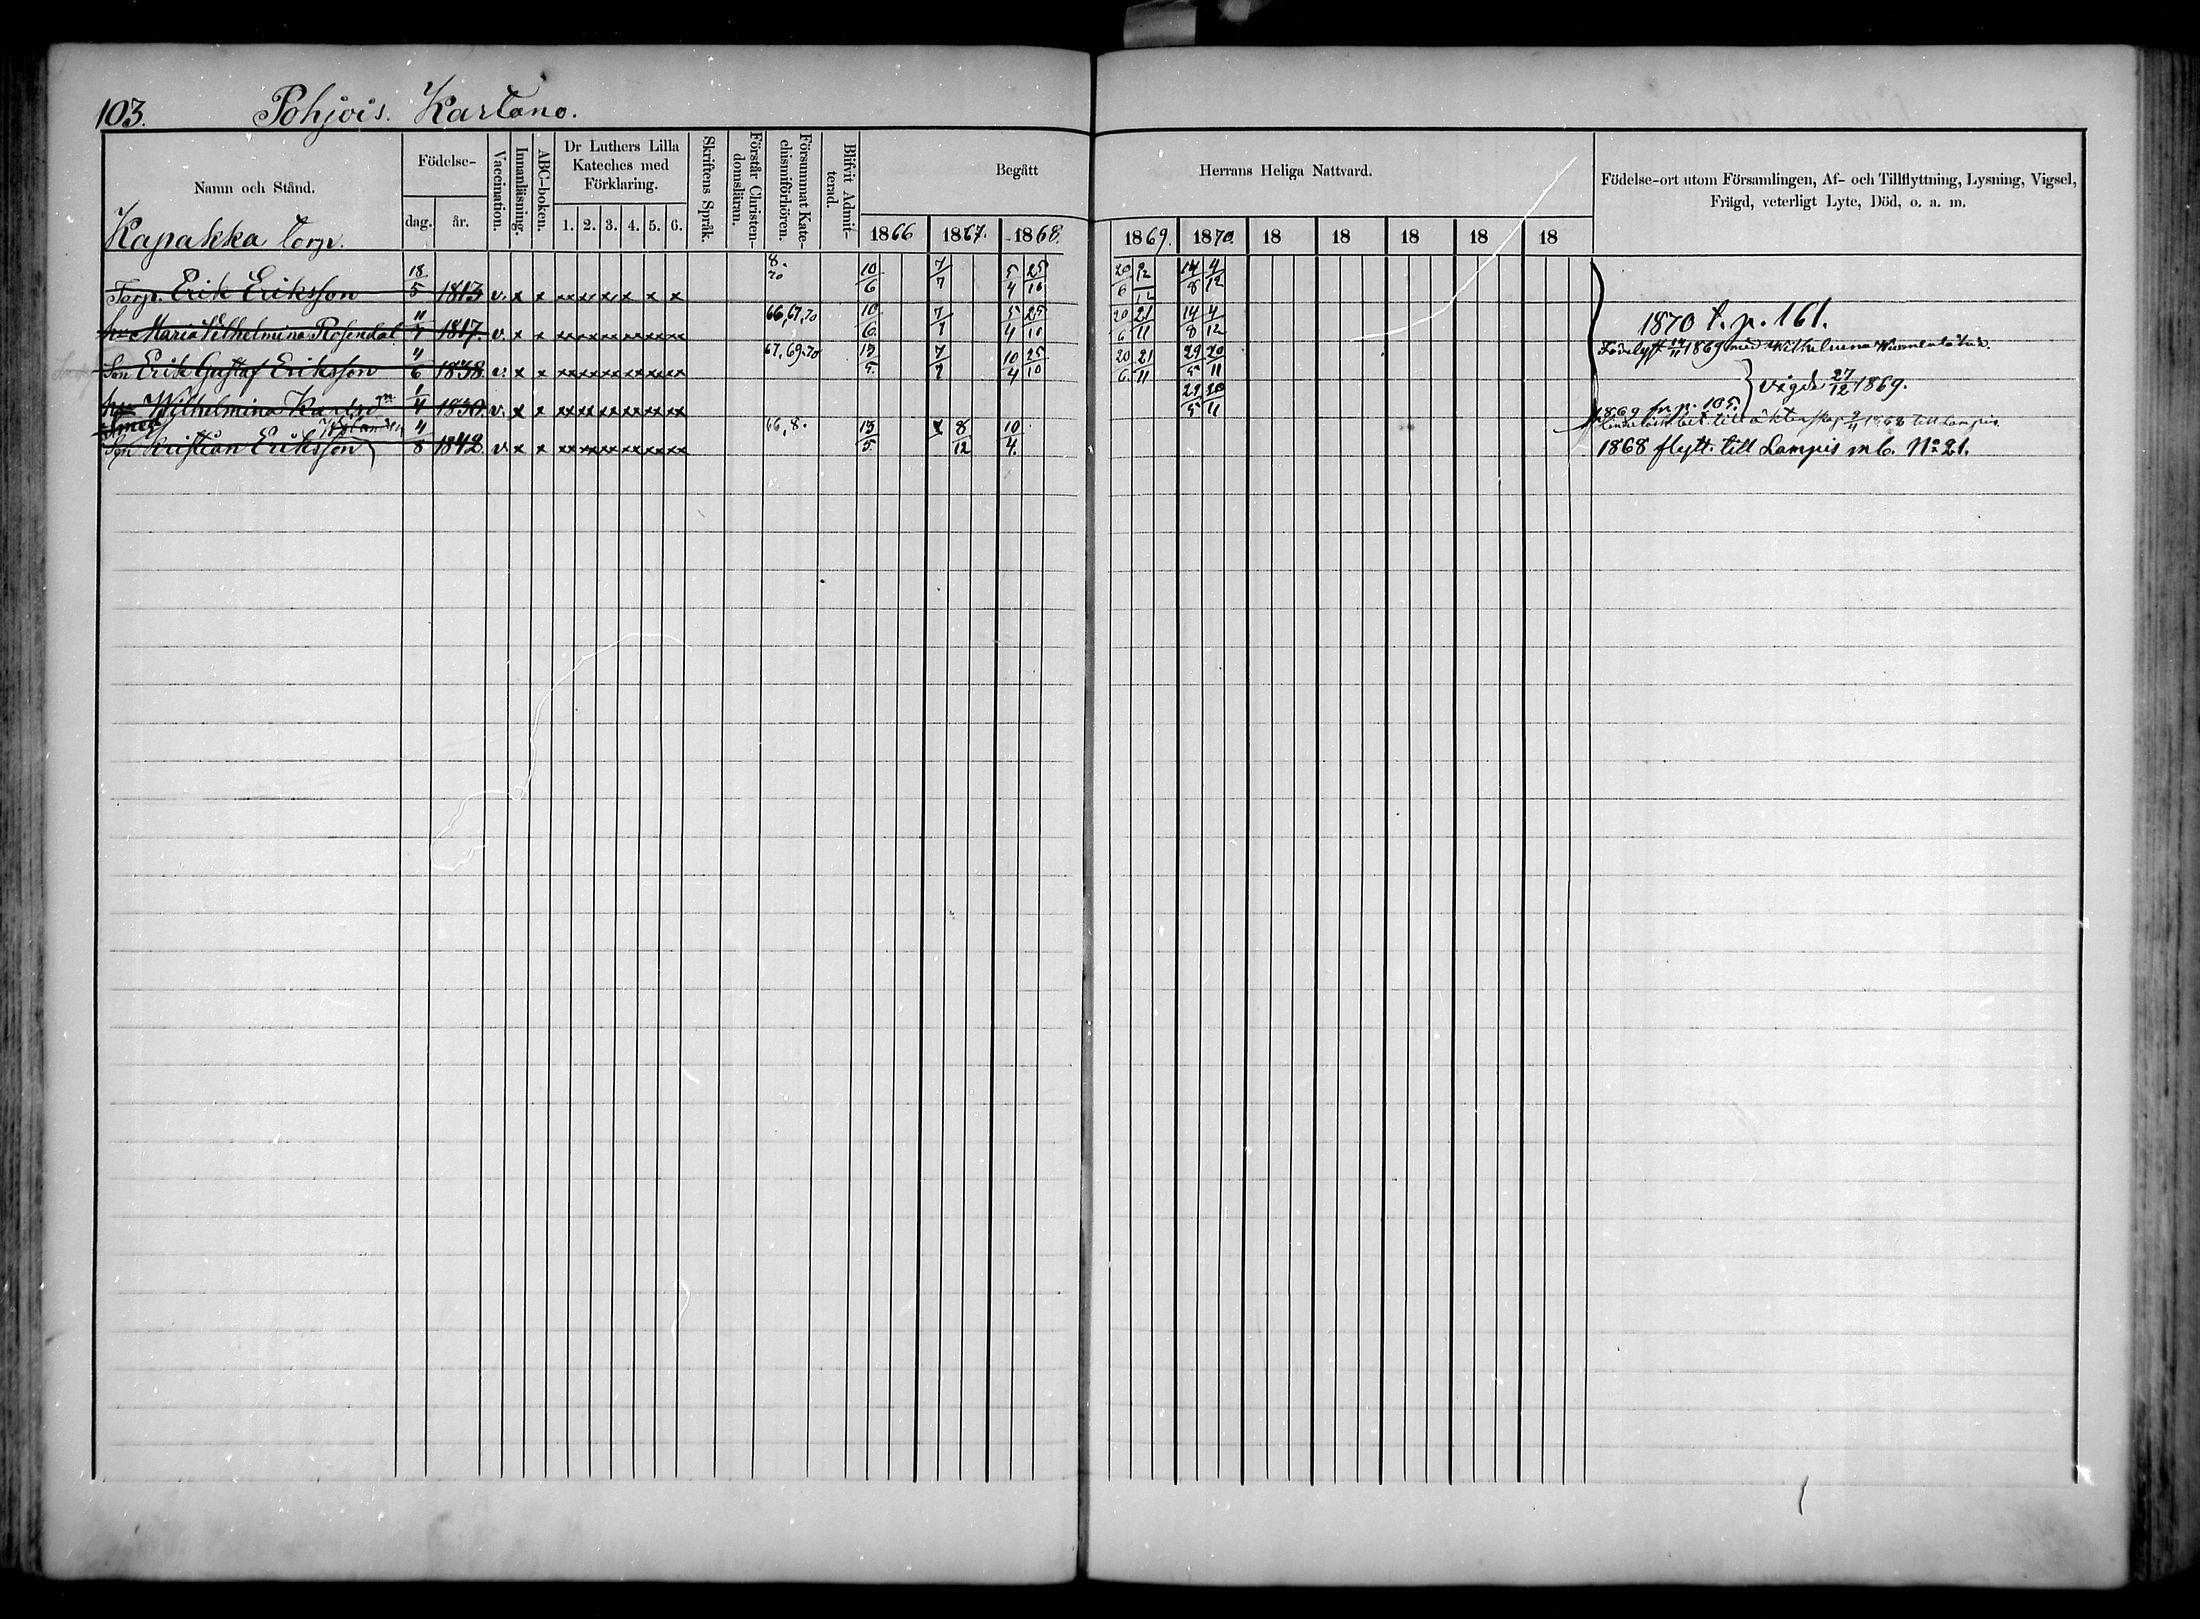 103. Pohjois. Kartano.
Namn och Stånd. Födelse- dag. år. Vaccination. Innanläsning. ABC-boken. Dr Luthers Lilla Kateches med Förklaring. 1. 2. 3. 4. 5. 6. Skriftens Språk. Förstår Christendomsläran. Försummat Katechismiförhören. Blifvit Admitterad. Begått Herrans Heliga Nattvard. 1866 1867. 1868. 1869. 1870. 18 18 18 18 18 Födelse-ort utom Församlingen, Af- och Tillflyttning, Lysning, Vigsel,
Frägd, veterligt Lyte, Död, o. a. m.
Kapakka torp.
Torp. Erik Eriksson 18/5 1813 v. x x x x x x x x 8. 70 10/6 7/7 5/4 25/10 20/6 14/8 4/12
hu Maria Vilhelmina Rosendal 11/4 1817. v. x x x x x x x x 66, 67, 70 10/6 7/7 5/4 25/10 20/6 21/11 14/8 4/12 1870 t. p. 161.
Son Erik Gustaf Eriksson 4/6 1838 v. x x xx xx xx xx xx xx 67, 69, 70 13/5 7/7 10/4 25/10 20/6 21/11 29/5 20/11 1869 med Wilhelmina
hu Wilhelmina Karlsd 1/4 1830. v. x x xx xx xx xx xx xx 29/5 20/11 vigde 27/12 1869.
1869 fr. p. 105.
Smed
Son Kristian Eriksson 4/8 1842 v. x x xx xx xx xx xx xx 66, 8. 13/5 8/12 10/4 till äktenskap 1868 till Lampis
1868 flytt. till Lampis mb. No 21.